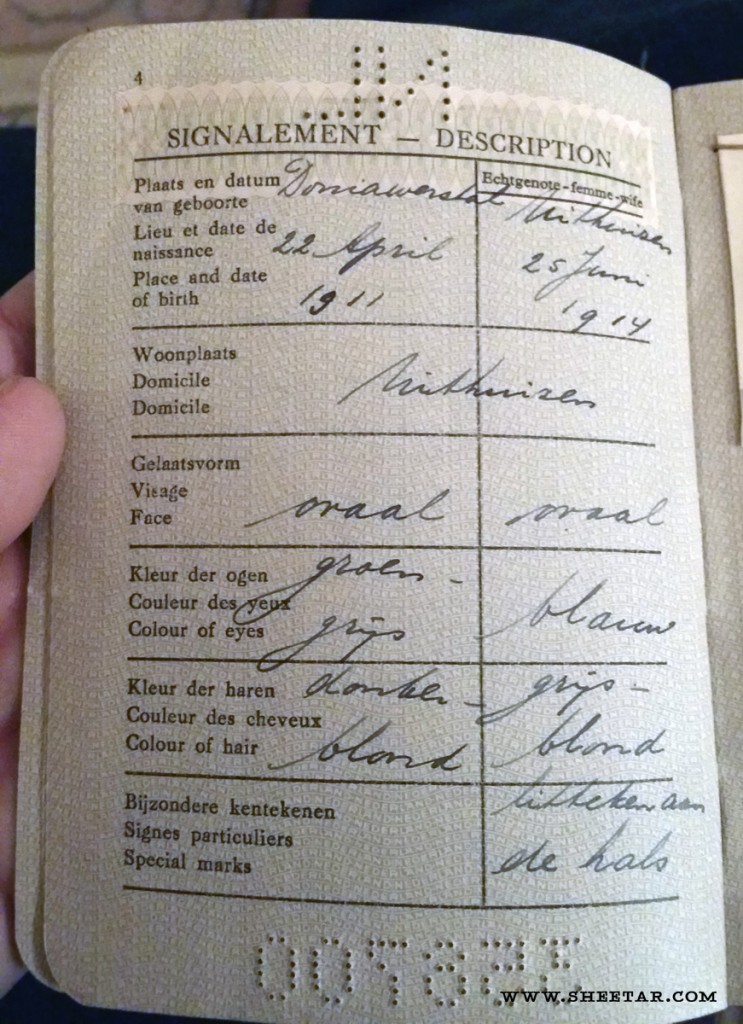 4
SIGNALEMENT — DESCRIPTION
Plaats en datum
van geboorte
Lieu et date de
naissance
Place and date
of birth
Doniawerstal
22 April
1911
Echtgenote-femme-wife
Uithuizen
25 Juni
1914
Woonplaats
Domicile
Domicile
Uithuizen
Gelaatsvorm
Visage
Face
ovaal
ovaal
Kleur der ogen
Couleur des yeux
Colour of eyes
groen-
grijs
blauw
Kleur der haren
Couleur des cheveux
Colour of hair
donker-
blond
grijs-
blond
Bijzondere kentekenen
Signes particuliers
Special marks
litteken aan
de hals
WWW.SHEETAR.COM